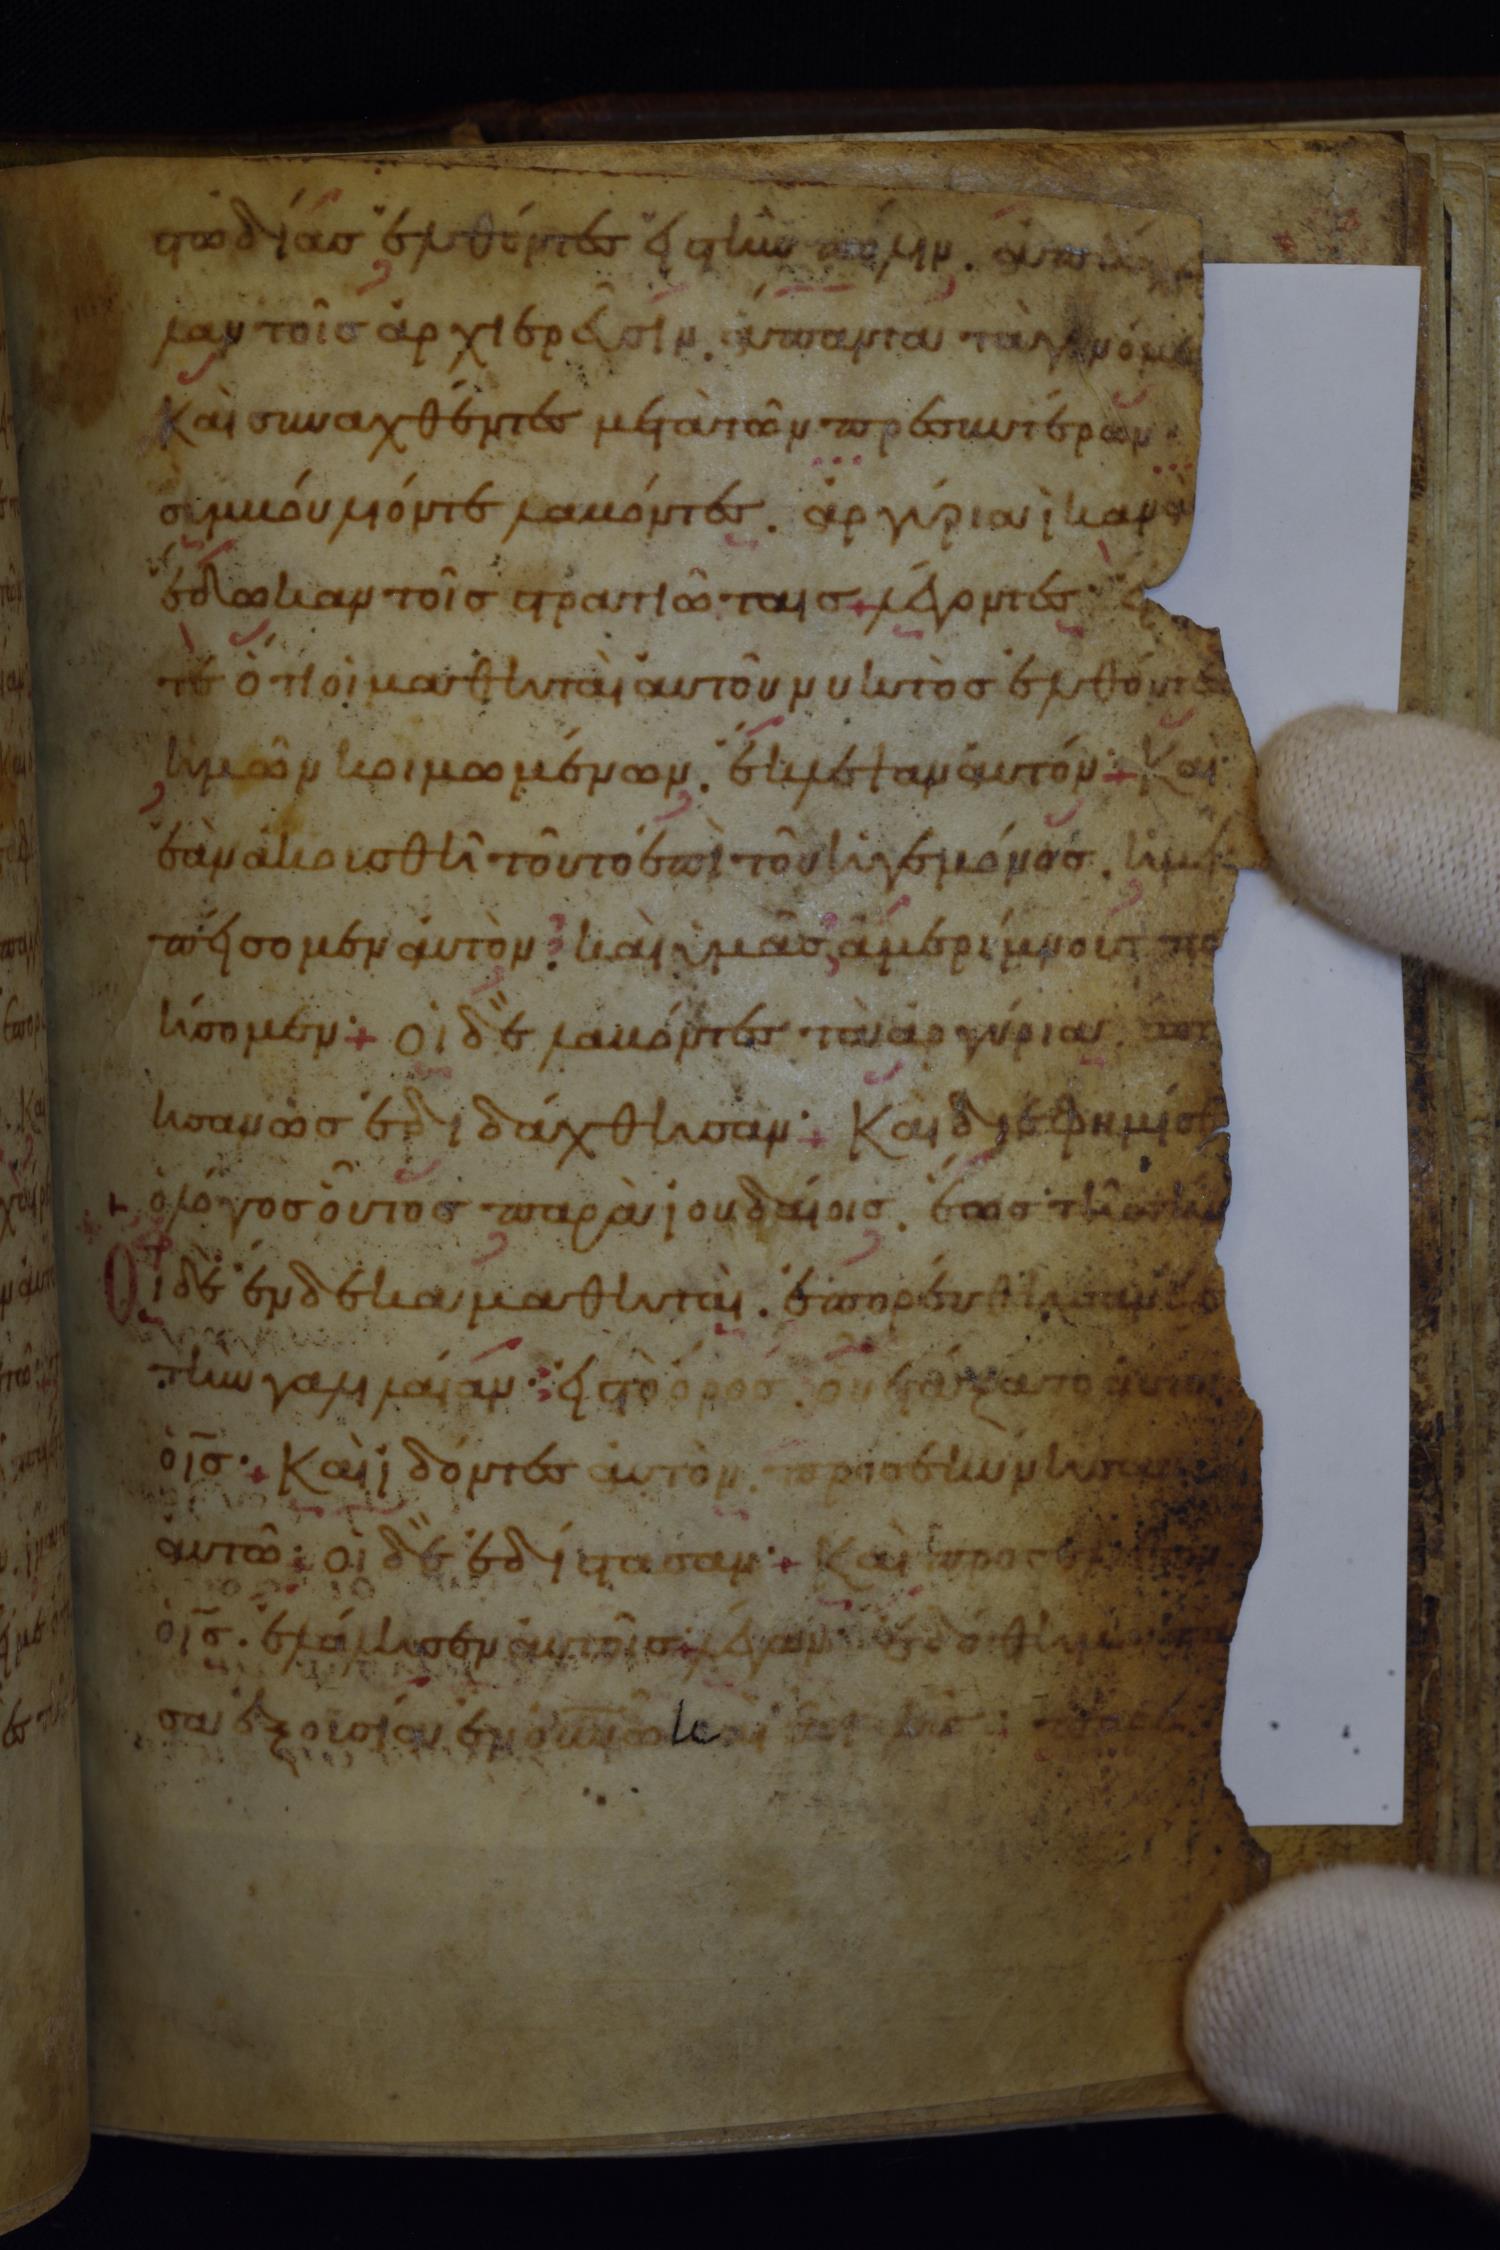 στωδίας ἐλθέντες εἰς τὴν πόλιν. ἀπήγγει
λαν τοῖς ἀρχιερεῦσιν. ἅπαντα τὰ γενόμε
Καὶ συναχθέντες μετὰ τῶν πρεσυτέρων.
συμβούλιόν τε λαβόντες. ἀργύρια ἱκανὰ
ἔδωκαν τοῖς στρατιώταις + λέγοντες· εἴ
τε ὅτι οἱ μαθηταὶ αὐτοῦ νυκτὸς ἐλθόντες
ἡμῶν κοιμωμένων. ἔκλεψαν αὐτόν· + Καὶ
ἐὰν ἀκουσθῆ τοῦτο ἐπὶ τοῦ ἡγεμόνος. ἡμεῖ
πείσομεν αὐτὸν· καὶ ὑμᾶς ἀμερίμνους ποι
ήσομεν· + οἱ δὲ λαβόντες τὰ ἀργύρια. ἐποί
ησαν ὡς ἐδιδάχθησαν· + Καὶ διεφημίσθ
ὁ λόγος οὗτος παρὰ ἰουδαίοις. ἕως τῆς
Οἱ δὲ ἕνδεκα μαθηταὶ. ἐπορεύθησαν εἰς
τὴν γαλιλαίαν· εἰς τὸ ὄρος. οὗ ἐτάξατο αὐτοῖ
ὁ ις̅. + Καὶ ἰδόντες αὐτὸν. προσεκύνησαν
αὐτῶ· οἱ δὲ ἐδίστασαν· + Καὶ προσελθὼν
ὁ ις̅. ἐλάλησεν αὐτοῖς· λέγων· ἐδόθη μοι πα
σα ἐξουσία ἐν οὐνῶ καὶ ἐπὶ γῆς·